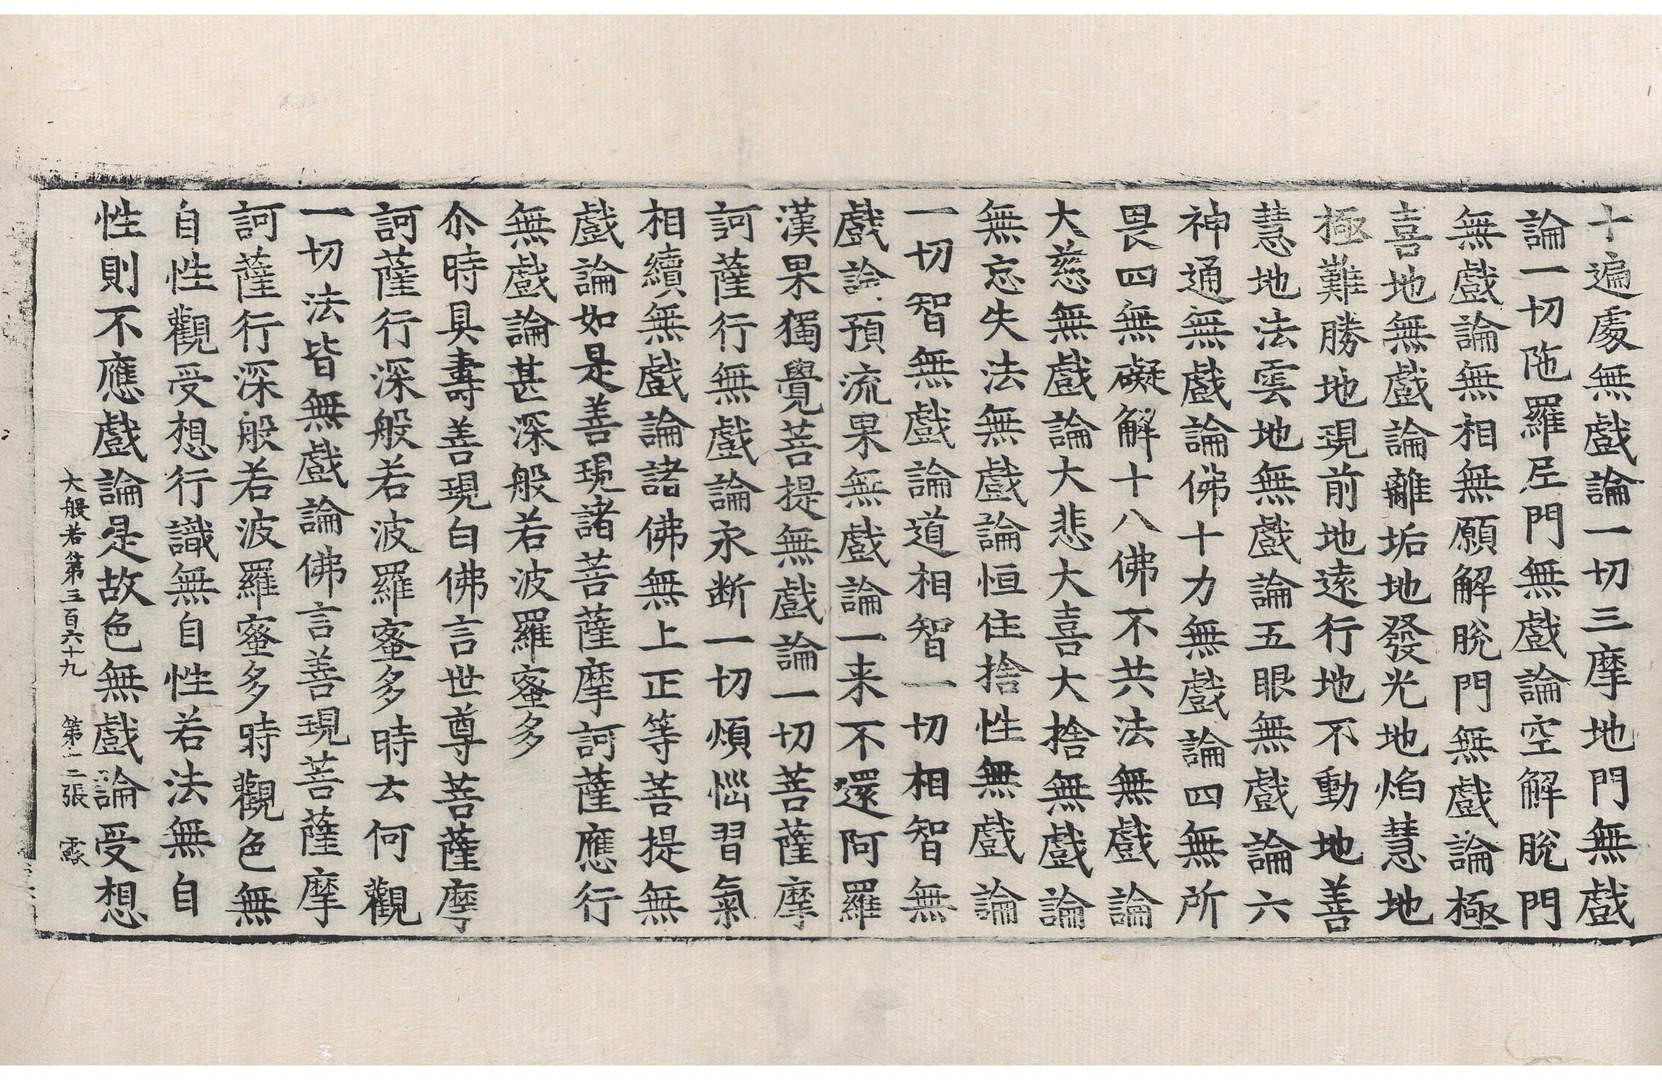 十遍處無戲論一切三摩地門無戲
論一切陁羅尼門無戲論空解脫門
無戲論無相無願解脫門無戲論極
喜地無戲論離垢地發光地焰慧地
極難勝地現前地遠行地不動地善
慧地法雲地無戲論五眼無戲論六
神通無戲論佛十力無戲論四無所
畏四無礙解十八佛不共法無戲論
大慈無戲論大悲大喜大捨無戲論
無忘失法無戲論恒住捨性無戲論
一切智無戲論道相智一切相智無
戲論預流果無戲論一来不還阿羅
漢果獨覺菩提無戲論一切菩薩摩
訶薩行無戲論永断一切煩惱習氣
相續無戲論諸佛無上正等菩提無
戲論如是善現諸菩薩摩訶薩應行
無戲論甚深般若波羅蜜多
尒時具壽善現白佛言世尊菩薩摩
訶薩行深般若波羅蜜多時云何觀
一切法皆無戲論佛言善現菩薩摩
訶薩行深般若波羅蜜多時觀色無
自性觀受想行識無自性若法無自
性則不應戲論是故色無戲論受想
大般若第三百六十九 第十二張 霰